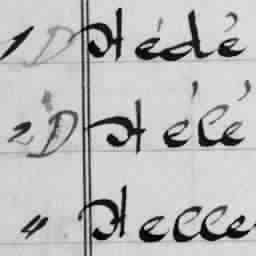 1 D Hédé
2 D Hélé
4 Helle